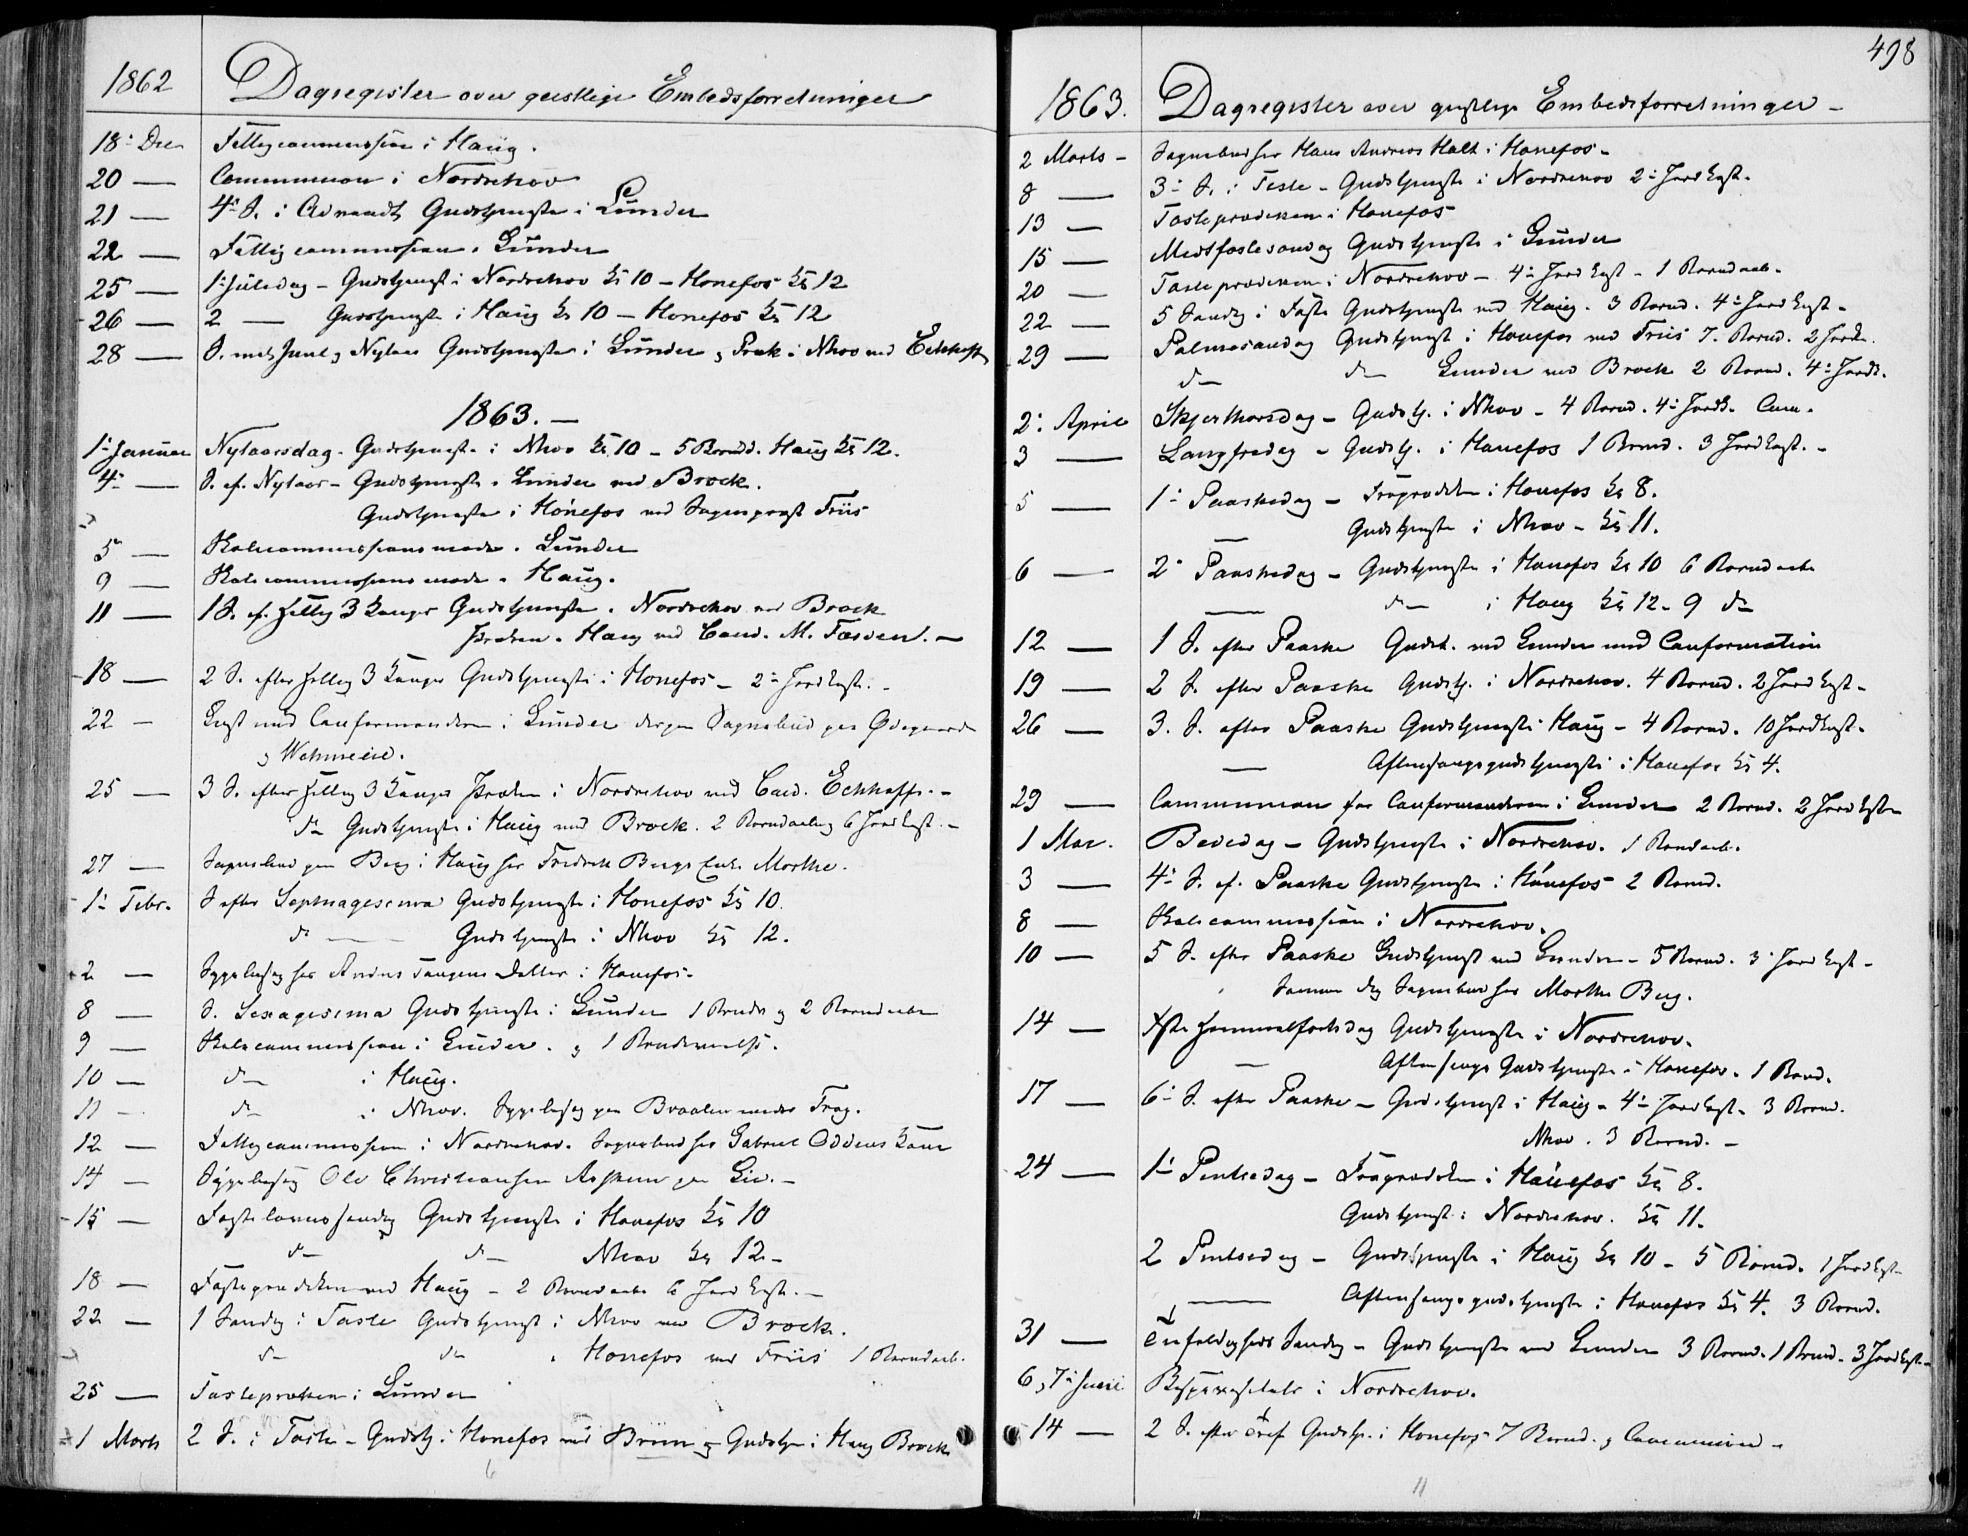 1862 Dagregister over geistlige Embedsforretninger
18: Dec Fattigcommission i Haug.
20 — Communion i Nordrehov
21 — 4: S. i Advendt Gudstjeneste i Lunder
22 — Fattigcommission i Lunder
25 — 1: Juledag – Gudstjenst i Nordrehov Kl 10 – Honefos Kl 12
26 — 2 — Gudstjenste i Haug Kl 10 – Honefos Kl 12
28 — S. mel. Juul og Nytaar Gudstjeneste i Lunder og Præk i Nhov ved Eckhoff
1863. —
1: Januar Nytaarsdag – Gudstjeneste i Nhov Kl. 10 – 5 Barnd. Haug Kl 12.
4: — S. ef. Nytaar – Gudstjeneste i Lunder ved Brock.
Gudstjeneste i Hønefos ved Sognepræst Friis
5 — Skolecommissionsmøde i Lunder
9 — Skolecommissions møde i Haug.
11 — 1 S. ef. Hellig 3 Konger Gudstjeneste i Nordrehov ved Brock
Præken i Haug ved Cand. M. –
18 — 2 S. efter Hellig 3 Konger Gudstjeneste i Honefos – 2: Jordkast. –
22 — med Confirmanderne i Lunder Sognebud paa Ødegaard
og
25 — 3 S. efter Hellig 3 Konger Præken i Nordrehov ved Cand. Eckhoff. –
do Gudstjeneste i Haug ved Brock. 2 Barndaab og 6 Jordkast. –
27 — Sognebud paa Berg i Haug hos Fredrik Bergs Enke Marthe.
1: Febr. S efter Septuagesima Gudstjeneste i Honefos Kl 10.
do — Gudstjeneste i Nhov Kl 12.
2 — Sygebesøg hos Datter i Honefos.
8 — S. Sexagesima Gudstjeneste i Lunder 1 og 2 Barndaab
9 — Skolecommission i Lunder. og 1
10 — do i Haug.
11 — do i Nhov. Sygebesøg paa Braaten
12 — Fattigcommission i Nordrehov. Sognebud hos Gabriel Oddens Kone
14 — Sygebesøg Ole Christiansen paa
15 — Fastelavnssøndag Gudstjeneste i Honefos Kl 10
do do Nhov Kl 12 –
18 — Fastepræken ved Haug – 2 Barndaab 6 Jordkast. –
22 — 1 Søndag i Faste Gudstjenst i Nhov ved Brock.
do do i Honefos ved Friis 1 Barndaab.
25 — Fastepræken i Lunder
1 Marts 2 S. i Faste – Gudstj i Honefos ved Bruun og Gudstje i Haug Brock
6
498
1863. Dagregister over geistlige Embedsforretninger –
2 Marts – Sognebud hos Hans Andreas i Honefos –
8 — 3: S. i Faste – Gudstjeneste i Nordrehov 2: Jordkast.
13 — Fastepræken i Honefos
15 — Midtfastesøndag Gudstjeneste i Lunder
20 — Fastepræken i Nordrehov – 4: Jordkast – 1 Barndaab.
22 — 5 Søndag i Faste Gudstjeneste ved Haug. 3 Barnd. 4: Jordkast –
29 — Palmesøndag Gudstjenst i Honefos ved Friis 7. Barnd. 2 Jordk.
do do Lunder ved Brock 2 Barnd. 4: Jordk.
2: April Skjærthorsdag – Gudstj. i Nhov – 4 Barnd. 4: Jordk. Com.
3 — Langfredag – Gudstj. i Honefos 1 Barnd. 3 Jordkast. –
5 — 1: Paaskedag – Froprædiken i Honefos Kl 8.
— Gudstjeneste i Nhov – Kl 11.
6 — 2: Paaskedag – Gudstjeneste i Honefos Kl 10 6 Barndaab
— do i Haug Kl 12 – 9 do
12 — 1 S. efter Paaske Gudst. ved Lunder med Confirmation
19 — 2 S. efter Paaske Gudstj. i Nordrehov. 4 Barnd. 2 Jordkast –
26 — 3. S. efter Paaske Gudstjeneste Haug – 4 Barnd. 10 Jordkast –
— Aftensangsgudstjeneste i Honefos Kl 4.
29 — Communion for Confirmanderne i Lunder 2 Barnd. 2 Jordkaste
1 Mai. Bededag – Gudstjeneste i Nordrehov. 1 Barndaab.
3 — 4: S. ef. Paaske Gudstjeneste i Hónefos 2 Barnd.
8 — Skolecommission i Nordrehov.
10 — 5 S. efter Paaske Gudstjenst ved Lunder – 5 Barnd. 3: Jordkast –
Samme Dag Sognebud hos Marthe Berg.
14 — Kristi Himmelfartsdag Gudstjeneste i Nordrehov.
— Aftensangs Gudstjeneste i Honefos. 1 Barnd.
17 — 6: S. efter Paaske – Gudstjenst i Haug – 4: Jordkast – 3 Barnd.
Nhov. 3 Barnd. –
24 — 1: Pintsedag – Froprædiken i Hónefos Kl 8.
Gudstjenst i Nordrehov. Kl 11.
2 Pintsedag – Gudstjeneste i Haug Kl 10 – 5 Barnd. 1 Jordkast
— Aftensangsgudstjeneste i Honefos Kl 4. 3 Barnd.
31 — Trefoldigheds Søndag – Gudstjeneste ved Lunder 3 Barnd. 1 3 Jordkast –
6 og 7: Juni i Nordrehov.
14 — 2 S. efter Tref Gudstje. i Honefos 7 Barnd. og Communion –
11